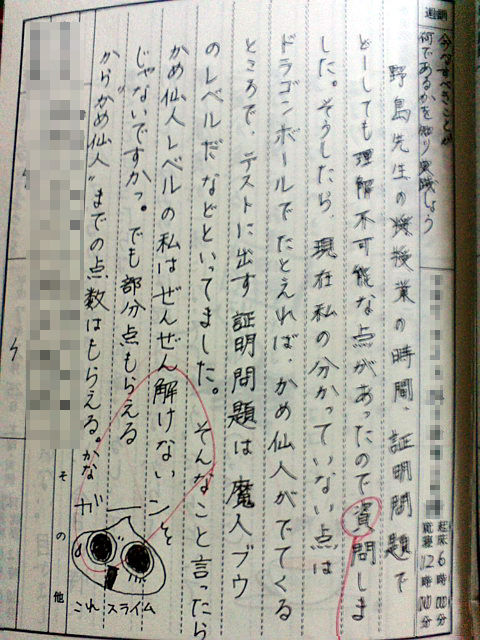 週訓
今なすべきことが
何であるかを知り実践しよう
起床 6時00分
就寝 12時00分
野島先生の授業の時間、証明問題で
どーしても理解不可能な点があったので資問しま
した。そうしたら、現在私の分かっていない点は
ドラゴンボールでたとえれば かめ仙人がでてくる
ところで、テストに出す証明問題は魔人ブウ
のレベルだなどといってました。そんなこと言ったら
かめ仙人レベルの私はぜんぜん解けない
じゃないですかっ。でも部分点もらえる
から"かめ仙人"までの点数はもらえる。かな
その他
これ スライム